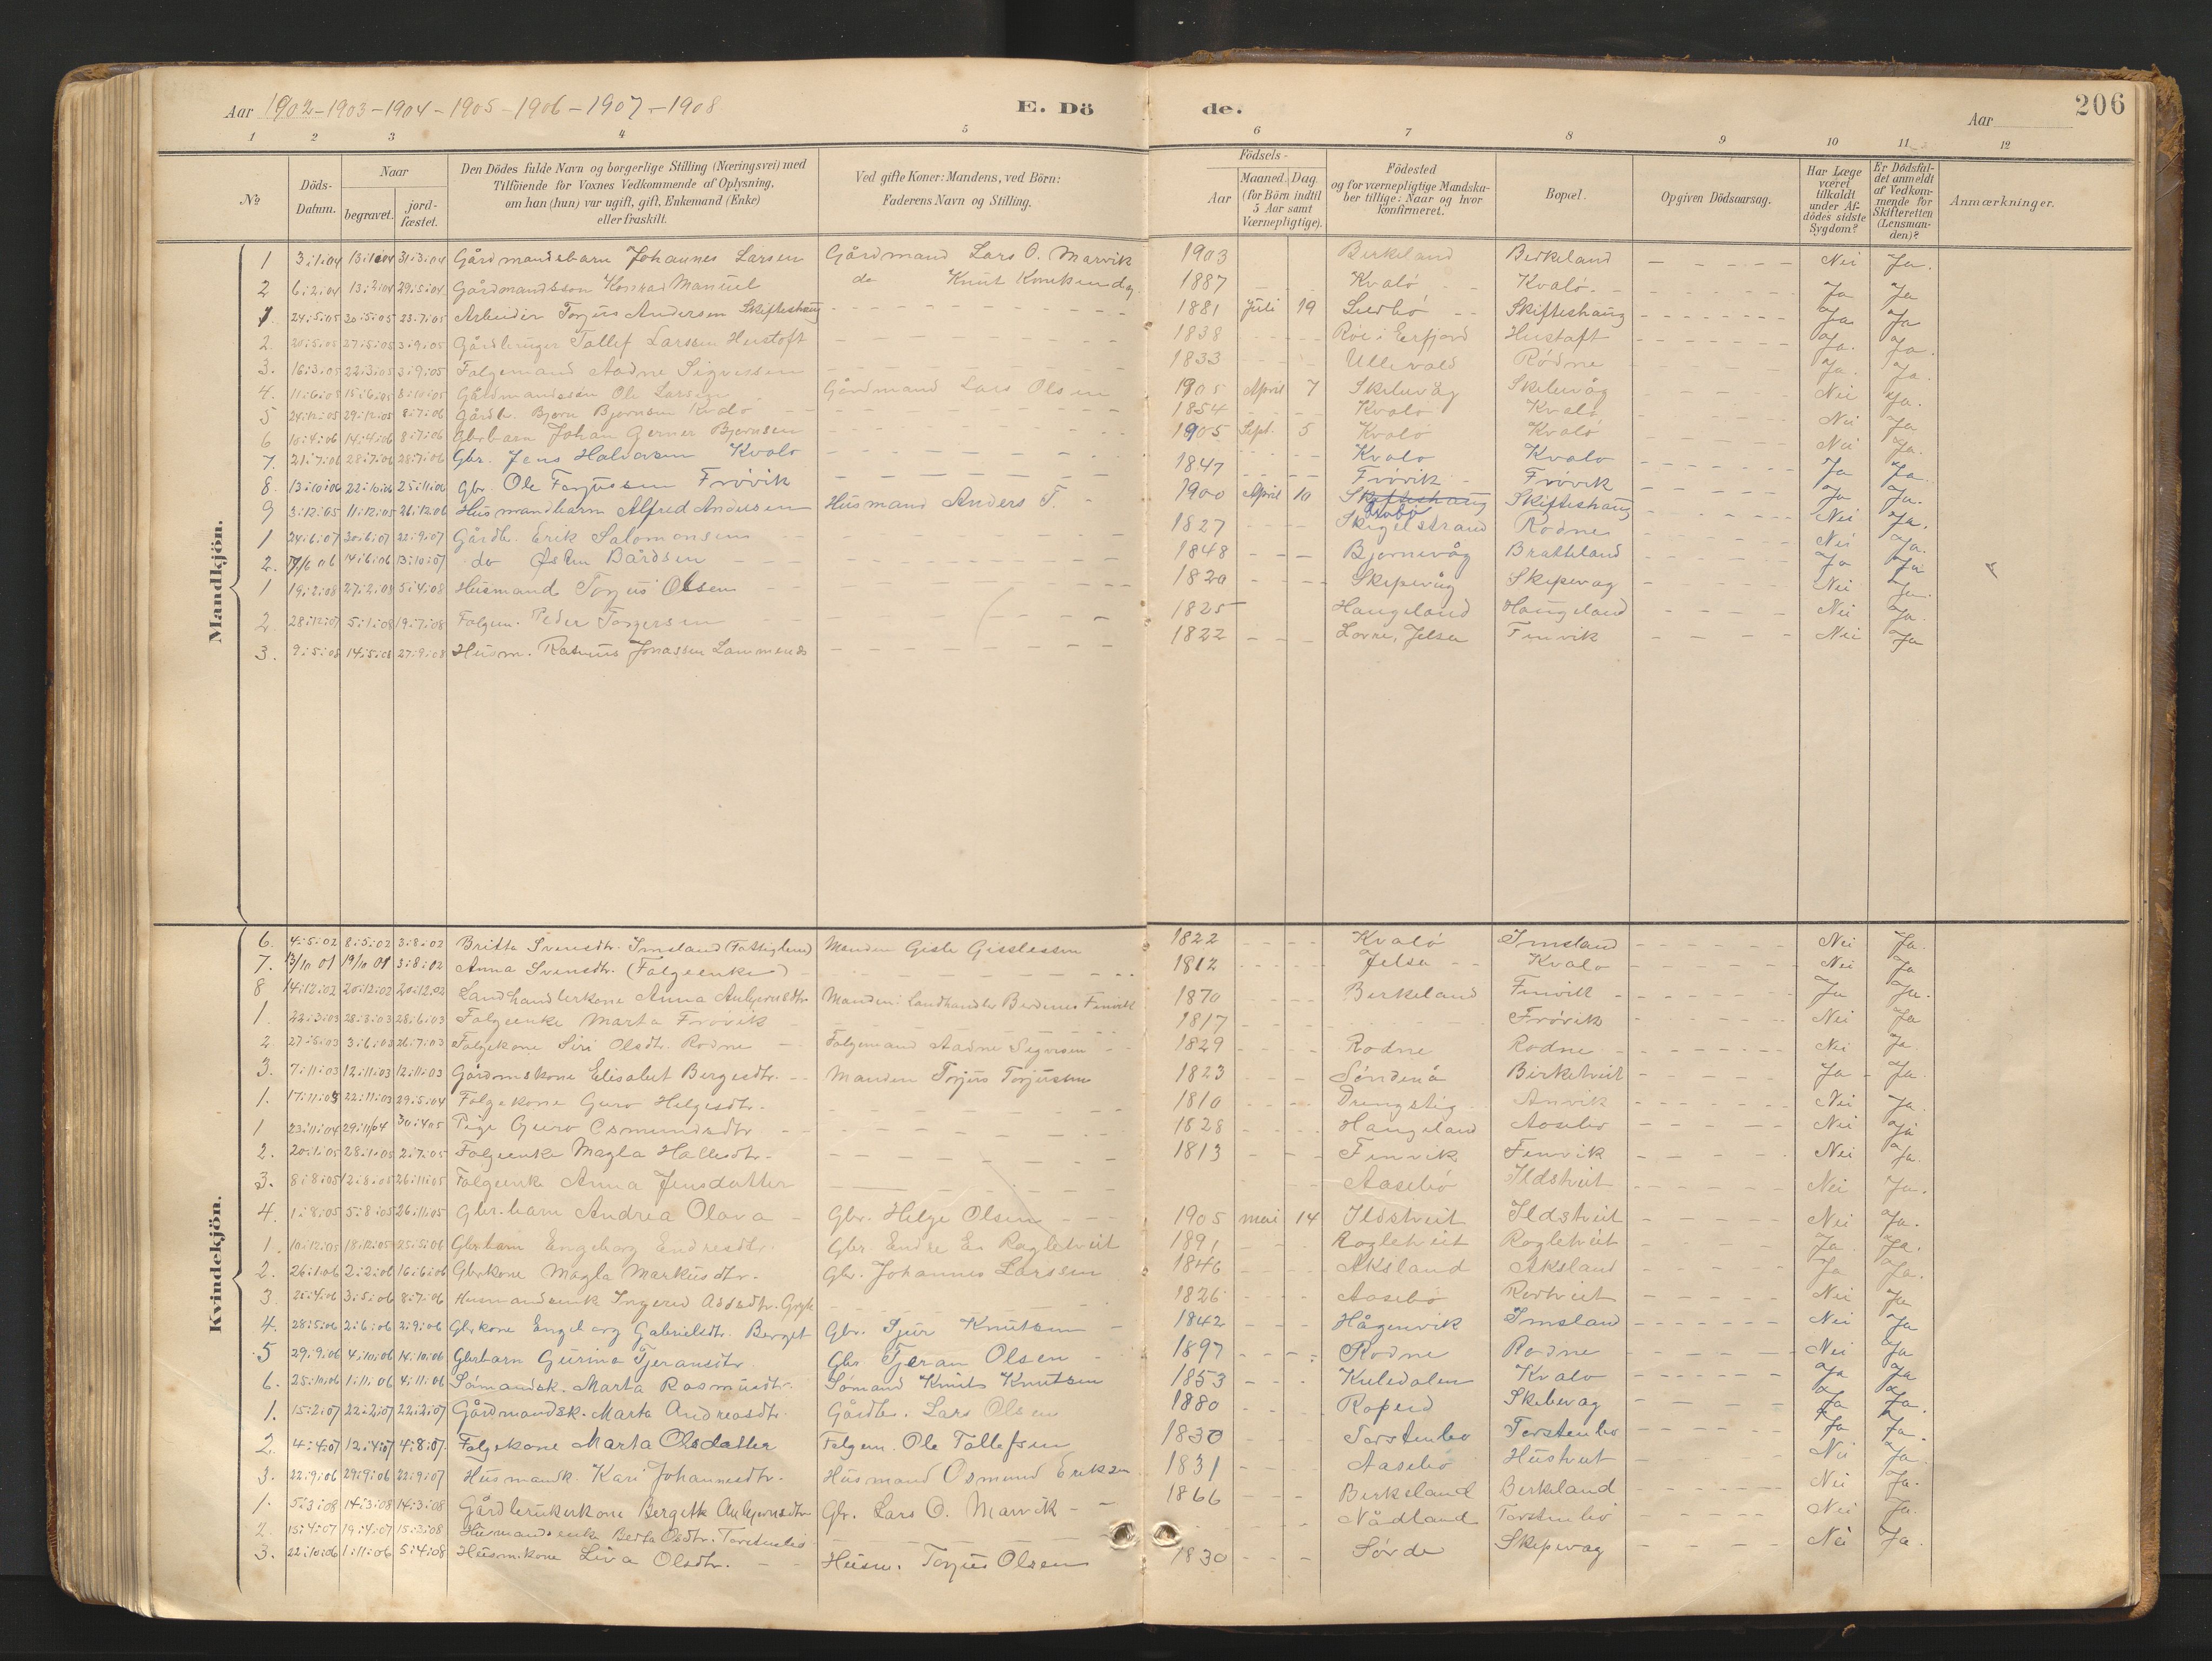 Aar 1902-1903-1904-1905-1906-1907-1908 E. Dö de. Aar 206
1 2 3 4 5 6 7 8 9 10 11 12
No
Döds-Datum.
Naar begravet. jord-fæstet.
Den Dödes fulde Navn og borgerlige Stilling (Næringsvei) med Tilföiende for Voxnes Vedkommende af Oplysning, om han (hun) var ugift, gift, Enkemand (Enke) eller fraskilt.
Ved gifte Koner: Mandens, ved Börn: Faderens Navn og Stilling.
Födsels-
Aar Maaned. Dag. (for Börn indtil 5 Aar samt Værnepligtige).
Födested og for værnepligtige Mandskaber tillige: Naar og hvor konfirmeret.
Bopæl.
Opgiven Dödsaarsag.
Har Læge været tilkaldt under Afdödes sidste Sygdom?
Er Dödsfaldet anmeldt af Vedkommende for Skifteretten (Lensmanden)?
Anmærkninger.
Mandkjön.
1 3:1:04 13:1:04 31:3:04 Gårdmandsbarn Johannes Larsen Gårdmand Lars O. Marvik 1903 Birkeland Birkeland Nei Ja.
2 6:2:04 13:2:04 29:5:04 Gårdmandssøn Konrad Manuel do Knut 1887 Kvaló Kvaló Ja Ja
1 24:5:05 30:5:05 23:7:05 Arbeider Torjus Andersen Skifteshaug 1881 Juli 19 Skifteshaug Ja Ja
2. 27:5:05 3:9:05 Tallef Larssen Hustoft 1838 Roi i Erfjord Hustoft Ja. Ja.
3. 16:3:05 22:3:05 3:9:05 Folgemand Aadne Sigvssen 1833 Ullevold Ródne Ja. Ja.
4. 11:6:05 15:6:05 8:10:05 Gårdmandssøn Ole Larsen Gårdmand Lars Olsen 1905 April 7 Skibevåg Skibevåg Nei Ja.
5 24:12:05 29:12:05 8:7:06 Gårdb. Bjørn Bjørnsen Kvalo 1854 Kvaló Kvaló Nei Ja
6 10:4:06 14:4:06 8:7:06 Gbrbarn Johan Gerner Bjørnsen 1905 Sept. 5 Kvaló Kvaló Nei Ja.
7. 21:7:06 28:7:06 28:7:06 Gbr. Jens Halvorsen Kvalo 1847 Kvalo Kvalo Ja Ja
8. 13:10:06 22:10:06 25:11:06 Gbr. Ole Torjussen Frøvik Frøvik Frøvik Ja Ja.
9 3:12:05 11:12:05 26:12:06 Husmandbarn Alfred Andersen Husmand Anders T. 1900 April 10 Skifteshaug Skifteshaug Nei Ja.
1 24:6:07 30:6:07 22:9:07 Gårdb. Erik Salomonsen 1827 Skigelstrand Rodne Nei Ja.
2. 7/6 06 14:6:06 13:10:07 do Østen Bårdsen 1848 Bjornevåg Bratteland Ja Ja
1 19:2:08 27:2:08 5:4:08 Husmand Torjus Olsen 1820 Skipevåg Skipevag Nei Ja.
2. 28:12:07 5:1:08 19:7:08 Folgem. Peder Torgersen 1825 Haugeland Haugeland Nei Ja.
3. 9:5:08 14:5:08 27:9:08 Husm. Rasmus Jonassen 1822 Lovre, Jelsa Finvik Nei Ja
Kvindekjön.
6. 4:5:02 8:5:02 3:8:02 Britta Svensdtr. Imsland (Fattiglem) Manden Gisle Gislessen 1822 Kvaló Imsland Nei Ja.
7. 13/10 01 19/10 01 3:8:02 Anna Svensdtr. (Folgeenke) 1812 Jelsa Kvalo Nei Ja
8 14:12:02 20:12:02 20:12:02 Landhandlerkone Anna Anbjørnsdtr. Manden: Landhandler Finvik 1870 Birkeland Finvik Ja Ja.
1. 22:3:03 28:3:03 28:6:03 Folgeenke Marta Frøvik 1817 Frøvik Nei Ja
2 27:5:03 3:6:03 26:7:03 Folgekone Siri Olsdtr. Rodne Folgemand Aadne Sigvsen 1829 Rodne Rodne Nei Ja
3. 7:11:03 12:11:03 12:11:03 Gårdmskone Elisabet Bergesdtr. Manden Torjus Torjussen 1823 Söndenå Birketveit Ja Ja.
1. 17:11:03 22:11:03 29:5:04 Folgekone Guro Helgesdtr. 1810 Drengstig Anvik Nei Ja.
1 23:11:04 29:11/04 30:4:05 Pige Guro Osmundsdtr 1828 Haugeland Aasebo Nei Ja
2. 20:1:05 28:1:05 2:7:05 Folgeenke Magla Hallesdtr. 1813 Finvik Finvik Nei Ja.
3. 8:8:05 12:8:05 26:11:05 Folgeenke Anna Jensdatter Aasebó Ildstveit Nei Ja.
4. 1:8:05 5:8:05 26:11:05 Gbr.barn Andrea Olava Gbr. Helge Olsen 1905 mai 14 Ildstveit Ildstveit Nei Ja.
1. 10:12:05 18:12:05 25:5:06 Gbrbarn Engeborg Endresdtr. Gbr. Endre E. Ragletveit 1891 Ragletveit Ragletveit Ja Ja.
2. 26:1:06 2:2:06 16:6:06 Gbrkone Magla Markusdtr. Gbr. Johannes Larssen 1846 Aksland Aksland Ja Ja.
3. 25:4:06 3:5:06 8:7:06 Husmandsenke Ingered 1826 Aasebó Nei Ja
4. 28:5:06 2:6:06 2:9:06 Gbrkone Engeborg Gabrielsdtr. Berget Gbr. Sjur Knutsen 1842 Hågenvik Imsland Nei Ja
5 29:9:06 4:10:06 14:10:06 Gbrbarn Gurina Tjeransdtr. Gbr Tjeran Olsen 1897 Rodne Rodne Nei Ja
6. 25:10:06 1:11:06 4:11:06 Sómandsk. Marta Rasmusdtr. Sómand Knut Knutsen 1853 Kuledalen Kvalo Ja Ja
1. 15:2:07 22:2:07 22:2:07 Gårdmandsk. Marta Andreasdtr. Gårdbr. Lars Olsen 1880 Ropeid Skibevag Ja Ja.
2. 4:4:07 12:4:07 4:8:07 Folgekone Marta Olsdatter Folgem. Ole Tollefsen 1830 Torstenbo Torstenbo Ja Ja.
3. 22:9:06 29:9:06 22:9:07 Husmandk. Kari Johannesdtr. Husmand Osmund Eriksen 1831 Aasebó Nei Ja.
1. 5:3:08 14:3:08 14:3:08 Gårdbrukerkone Bergitte Anbjørnsdtr Gbr. Lars O. Marvik 1866 Birkeland Birkeland Nei Ja.
2. 15:4:07 19:4:07 15:3:08 Husmandsenke Berta Olsdtr. Torstenbo Nådland Torstenbo Nei Ja.
3. 22:10:06 1:11:06 5:4:08 Husm.kone Liva Olsdtr. Husm. Torjus Olsen 1830 Sórde Skipevag Nei Ja.